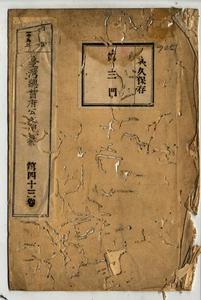 永久保存
第三門
臺灣總督府公文類纂
第四十三卷